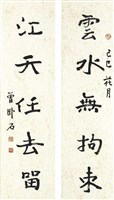 雲水無拘束
己巳花月
江天任去留
曾
石